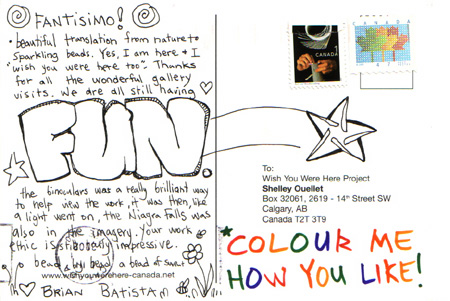 FANTISIMO!
• beautiful translation from nature to
sparkling beads. Yes, I am here & I
"wish you were here too". Thanks
for all the wonderful gallery
visits. We are all still having
FUN!
the binoculars was a really brilliant way
to help view the work, it was then, like
a light went on, the Niagra Falls was
also in the imagery. Your work
ethic is totally impressive.
bead by bead a bead of
www.wishyouwerehere-canada.net
BRIAN BATISTA
CANADA
CANADA
To:
Wish You Were Here Project
Shelley Ouellet
Box 32061, 2619 - 14th Street SW
Calgary, AB
Canada T2T 3T9
COLOUR ME
HOW YOU LIKE!